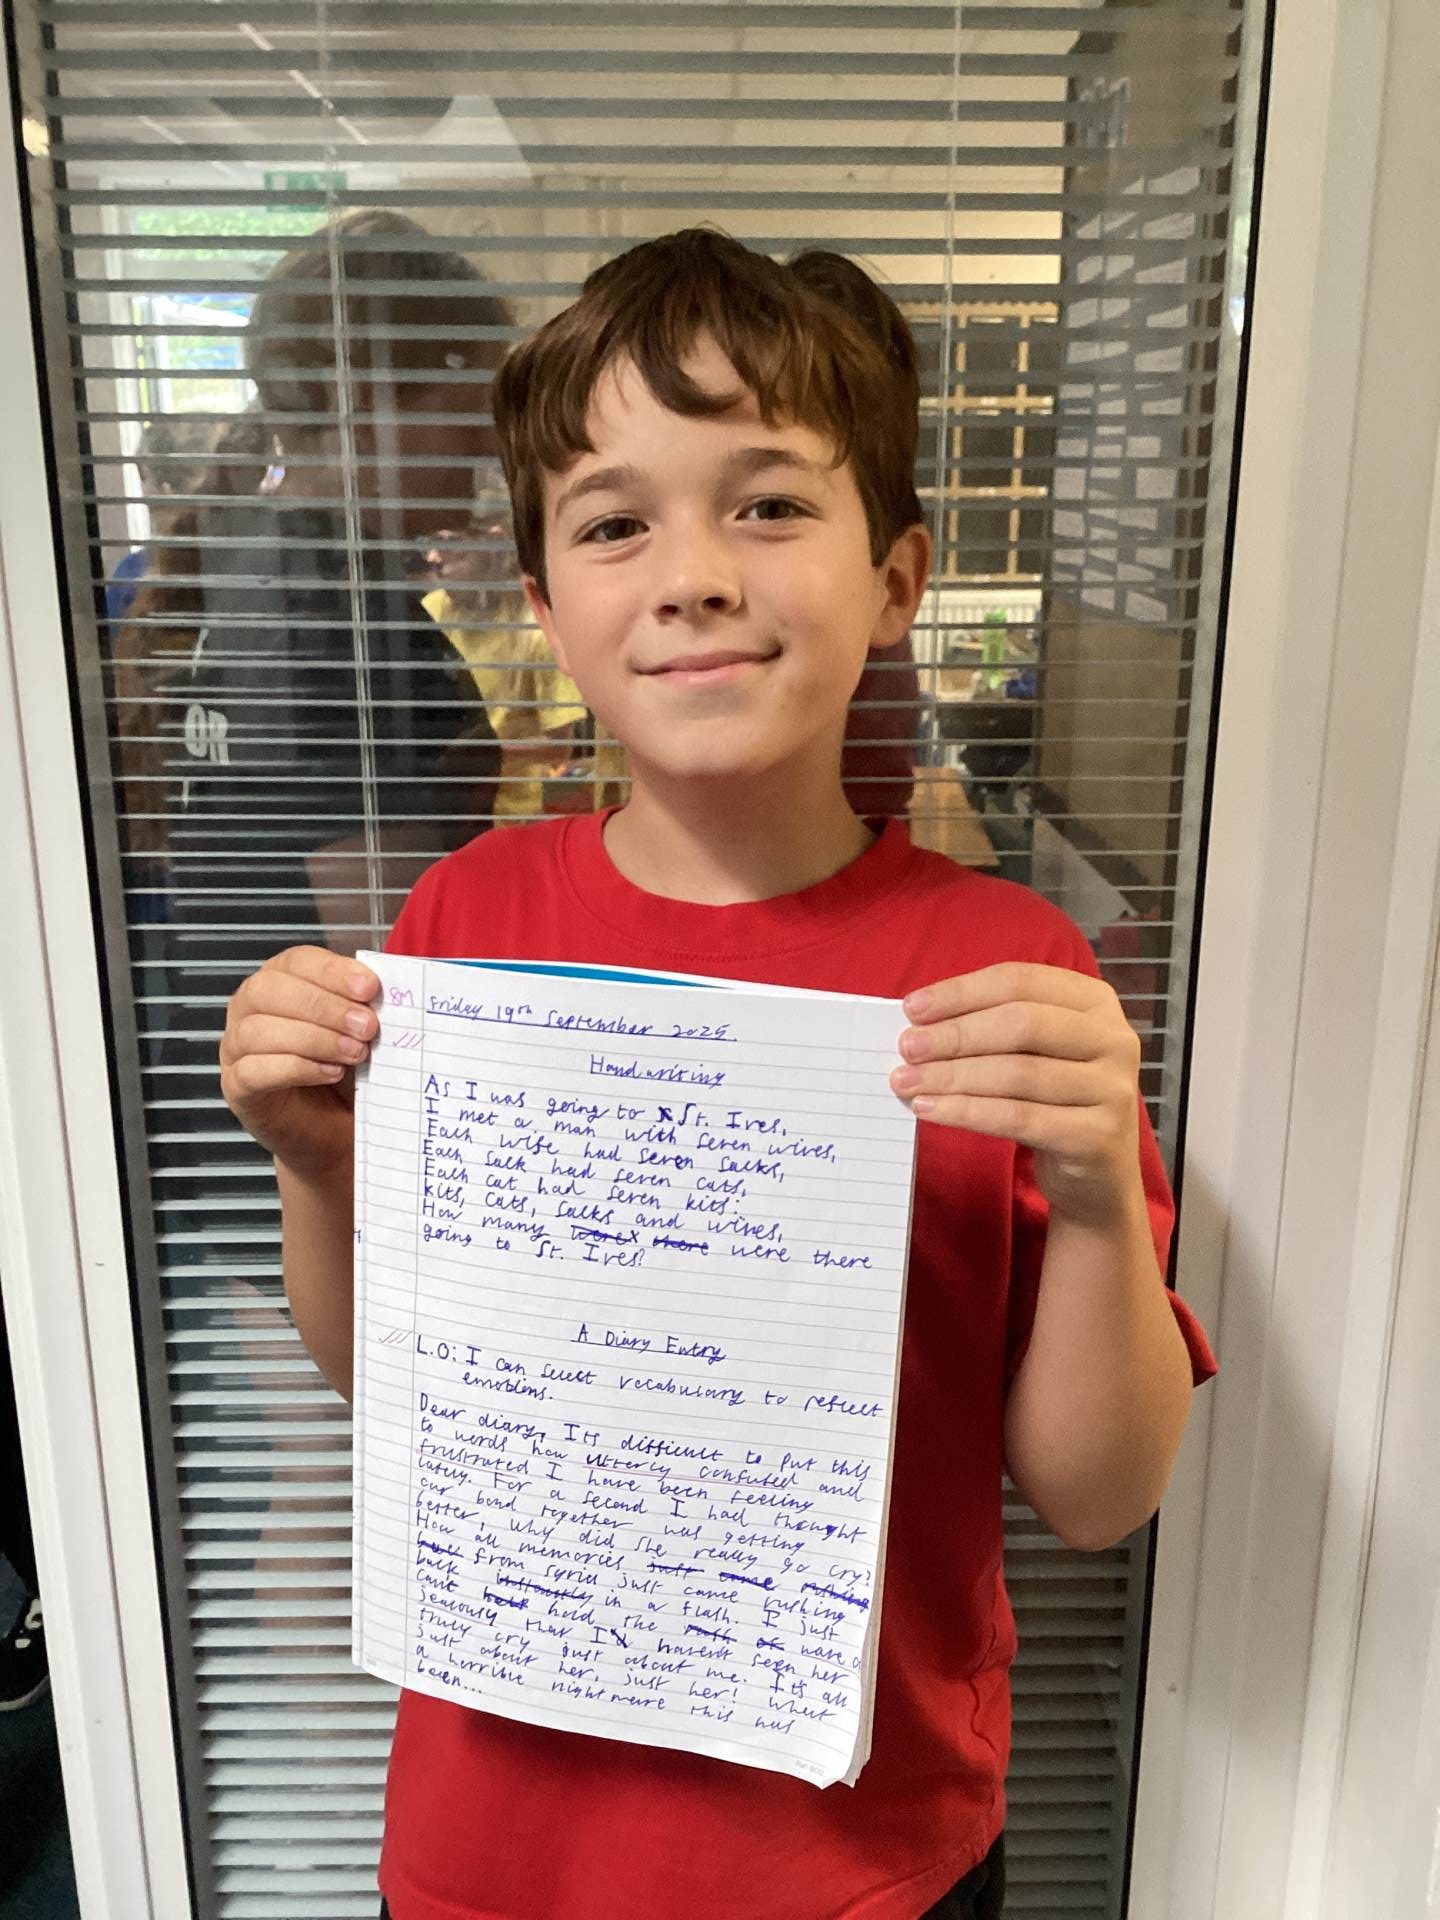 8M
Friday 19th September 2025.
Handwriting
As I was going to St. Ives,
I met a man with seven wives,
Each wife had seven sacks,
Each sack had seven cats,
Each cat had seven kits:
kits, cats, sacks and wives,
How many were there
going to St. Ives?
A Diary Entry
L.O: I can select vocabulary to reflect
emotions.
Dear diary, Its difficult to put this
to words how utterly confused and
frustrated I have been feeling
lately. For a second I had thought
our bond together was getting
better, why did she really go cry?
How all memories just came rushing
from Syria just came rushing
back instantly in a flash. I just
cant hold the have a
jealousy that I haven't seen her
truly cry just about me. It's all
just about her, just her! What
a horrible nightmare this has
been...
OR